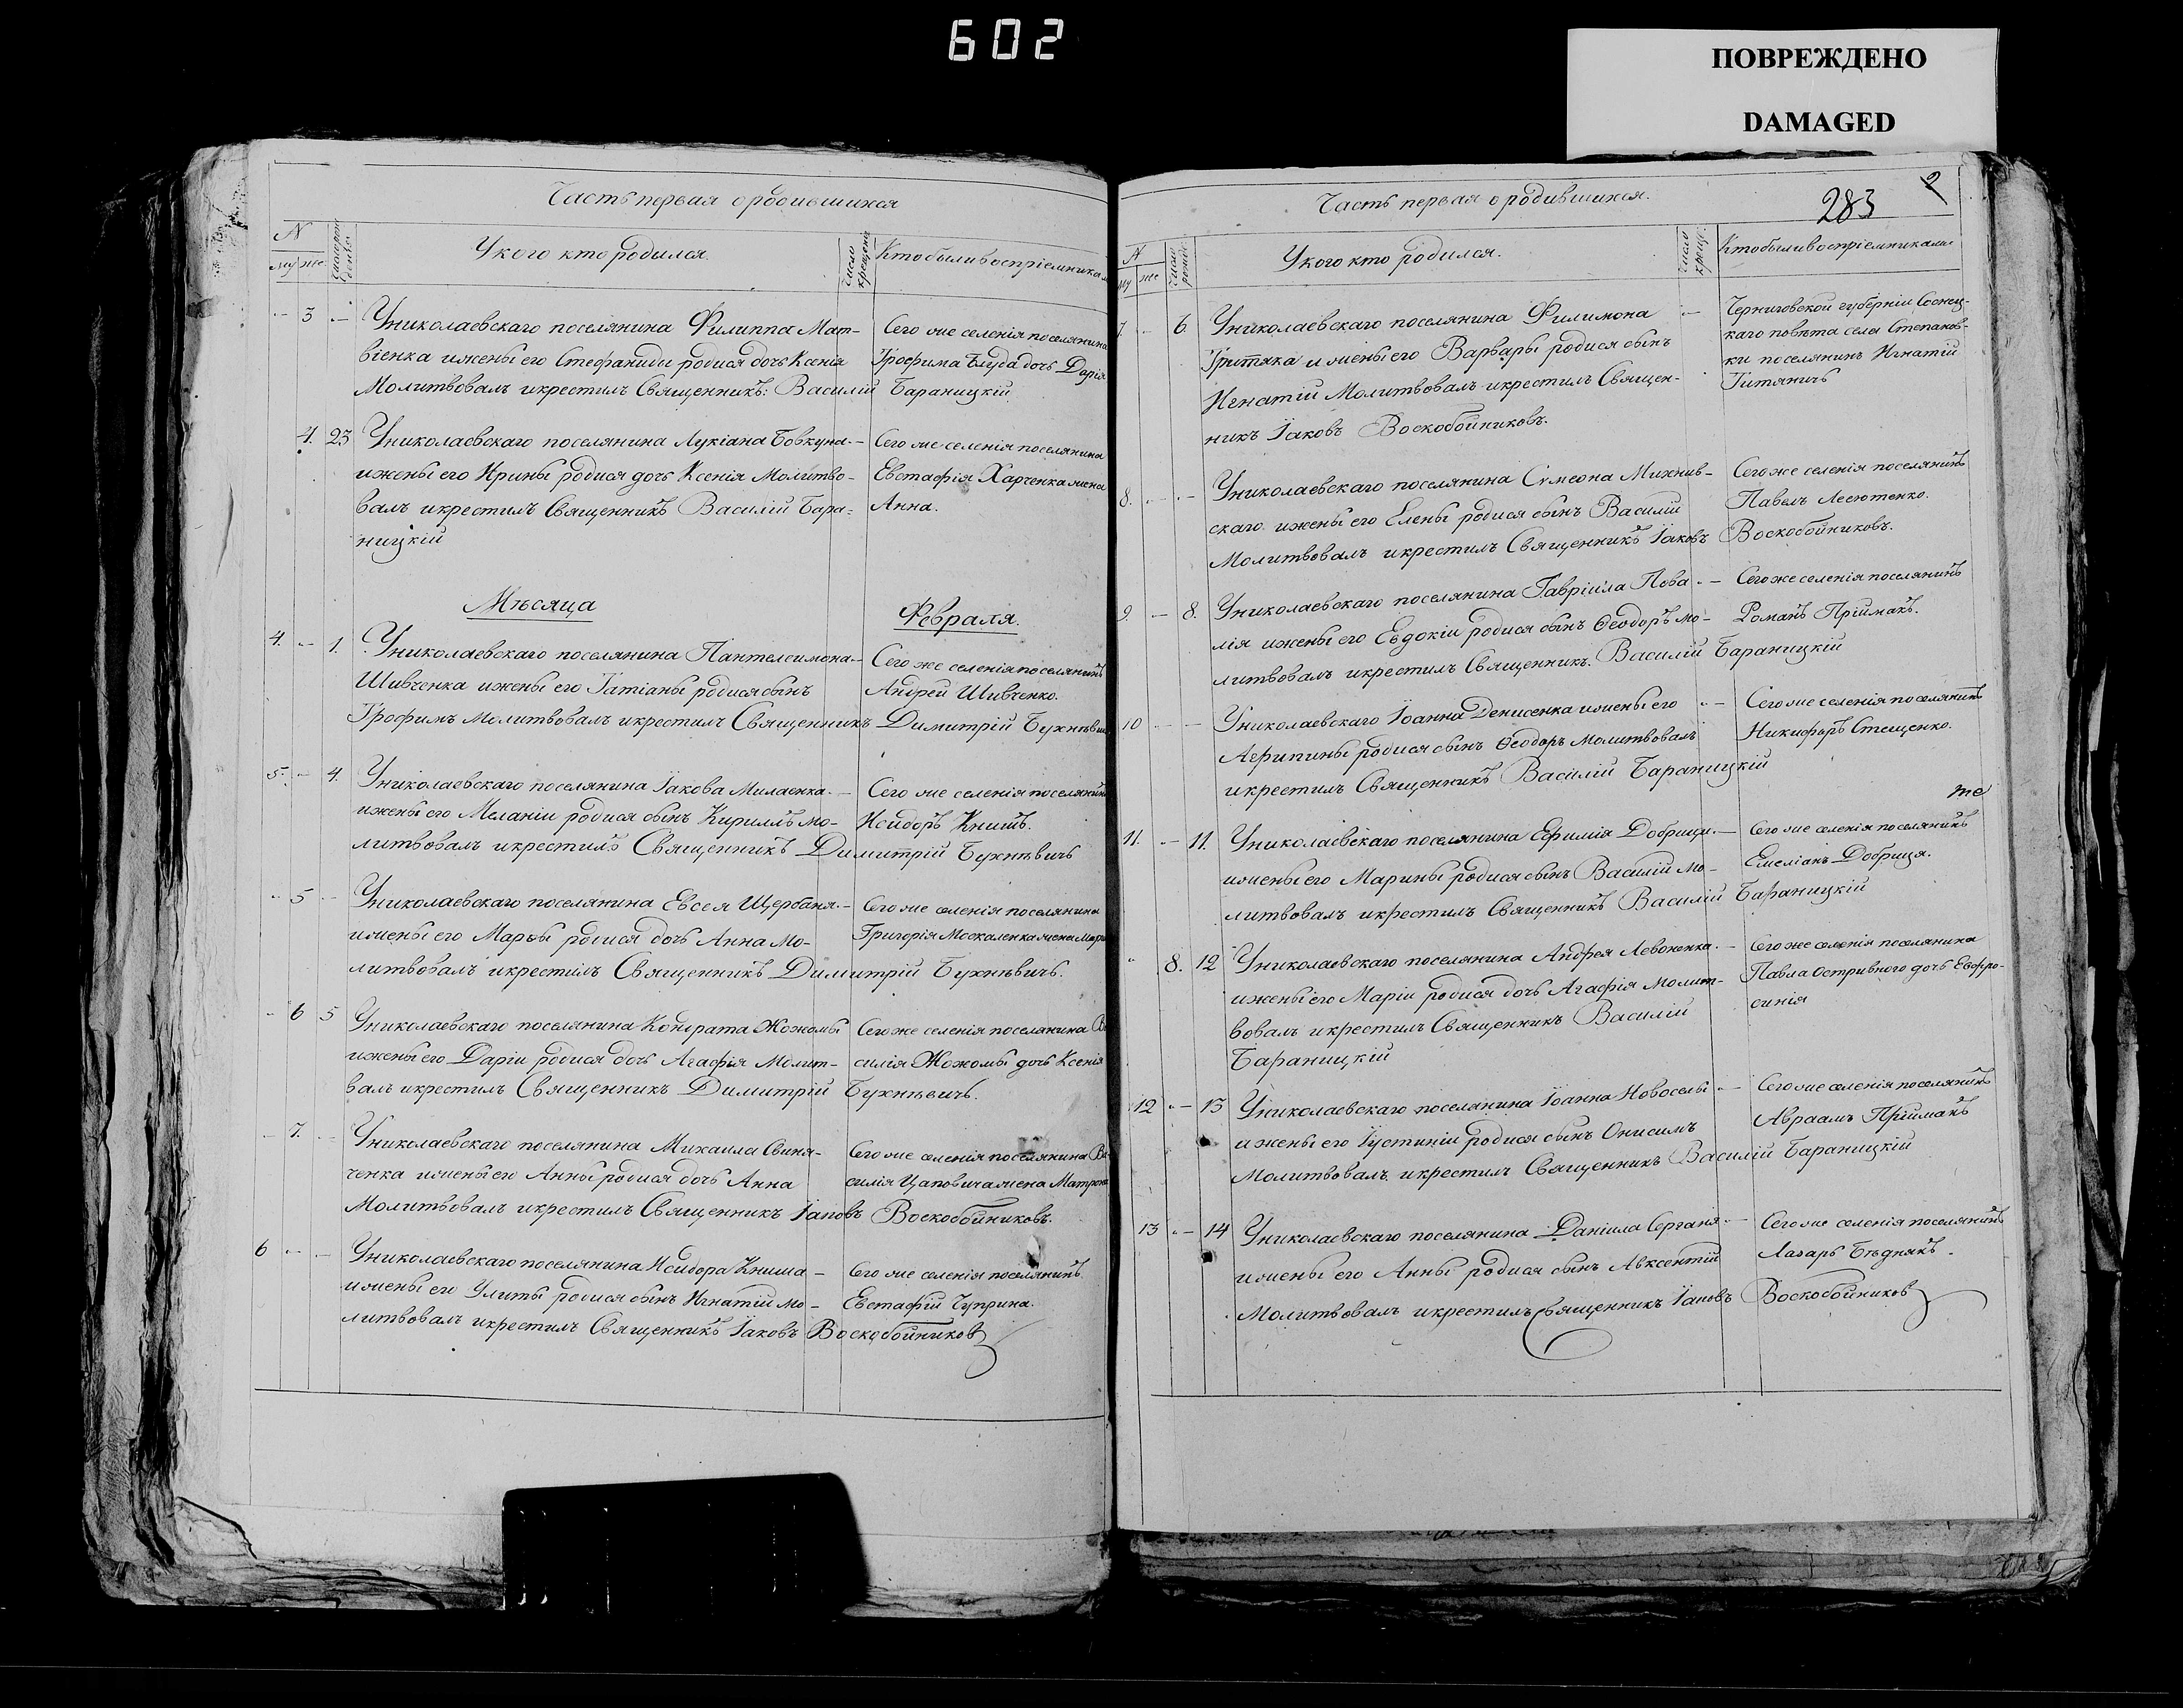 602
ПОВРЕЖДЕНО
DAMAGED
Часть первая о родившихся
N
му же
Число рож
У кого кто родился.
Число крещенія
Кто были воспріемника
3 У николаевскаго поселянина Филиппа Мат-
віенка и жены его Стефаниды родися дочь Ксенія
Молитвовалъ и крестилъ Священникъ: Василій Бараницкій
Сего же селенія поселянина
Трофима Блуда дочь Дарія
4. 23 У николаевскаго поселянина Лукіана Бовкуна
и жены его Ирины родися дочь Ксенія Молитво-
валъ и крестилъ Священникъ Василій Бара-
ницкій
Сего же селенія поселянина
Евстафія Харченка жена
Анна.
Мѣсяца Февраля.
4. 1. У николаевскаго поселянина Пантелеимона
Шивченка и жены его Татіаны родися сынъ
Трофимъ Молитвовалъ и крестилъ Священникъ Димитрій
Сего же селенія поселянинъ
Андрей Шивченко.
5. 4. У николаевскаго поселянина Іакова Милаенка.
и жены его Меланіи родися сынъ Кириллъ мо-
литвовалъ и крестилъ Священникъ Димитрій Бухнѣвичъ
Сего же селенія поселянинъ
Исидоръ Книшъ.
5 У николаевскаго поселянина Евсея Щербаня.
и жены его Марѳы родися дочь Анна мо-
литвовалъ и крестилъ Священникъ Димитрій Бухнѣвичъ.
Сего же селенія поселянина
Григорія Москаленка жена
6 5 У николаевскаго поселянина Кондрата Жожомы
и жены его Даріи родися дочь Агафія Молит-
валъ и крестилъ Священникъ Димитрій Бухнѣвичъ.
Сего же селенія поселянина Ва
силія Жожомы дочь Ксенія
7. У николаевскаго поселянина Михаила Свина-
ченка и жены его Анны родися дочь Анна
Молитвовалъ и крестилъ Священникъ Іаковъ Воскобойниковъ.
Сего же селенія поселянина Ва
силія Цаповича жена Матрона
6 У николаевскаго поселянина Исидора Книша
и жены его Улиты родися сынъ Игнатій мо-
литвовалъ и крестилъ Священникъ Іаковъ Воскобойников
Сего же селенія поселянинъ
Евстафій Чуприна.
Часть первая о родившихся.
283
2
N
му же
Число рожде
У кого кто родился.
Число крещ.
Кто были воспріемниками
7. 6. У николаевскаго поселянина Филимона
Гритяка и жены его Варвары родися сынъ
Игнатій Молитвовалъ и крестилъ Священ-
никъ Іаковъ Воскобойниковъ.
Черниговской губерніи Соснец-
каго повѣта села Степанов-
ки поселянинъ Игнатій
Титяничъ
8. У николаевскаго поселянина Сѵмеона Михнив-
скаго и жены его Елены родися сынъ Василій
Молитвовалъ и крестилъ Священникъ Іаковъ Воскобойниковъ.
Сего же селенія поселянинъ
Павелъ Лесютенко.
9. 8. У николаевскаго поселянина Гавріила Пова
лія и жены его Евдокіи родися сынъ Ѳеодоръ мо-
литвовалъ и крестилъ Священникъ. Василій Бараницкій
Сего же селенія поселянинъ
Романъ Пріймакъ.
10 У николаевскаго Іоанна Денисенка и жены его
Агрипины родися сынъ Ѳеодоръ Молитвовалъ
и крестилъ Священникъ Василій Бараницкій
Сего же селенія поселянинъ
Никифоръ Стещенко.
те
11. 11. У николаевскаго поселянина Ефимія Добрици.
и жены его Марины родися сынъ Василій мо-
литвовалъ и крестилъ Священникъ Василій Бараницкій
Сего же селенія поселянинъ
Емеліанъ Добриця.
8. 12 У николаевскаго поселянина Андрея Левоненка.
и жены его Маріи родися дочь Агафія Молит-
вовалъ и крестилъ Священникъ Василій
Бараницкій
Сего же селенія поселянина
Павла Остривного дочь Евфро-
синія
12 13 У николаевскаго поселянина Іоанна Новоселы
и жены его Іустиніи родися сынъ Онисимъ
Молитвовалъ и крестилъ Священникъ Василій Бараницкій
Сего же селенія поселянинъ
Авраамъ Пріймакъ
13 14 У николаевскаго поселянина Даніила Серганя
и жены его Анны родися сынъ Авксентій
Молитвовалъ и крестилъ священникъ Іаковъ Воскобойников
Сего же селенія поселянинъ
Лазарь Бѣднякъ.